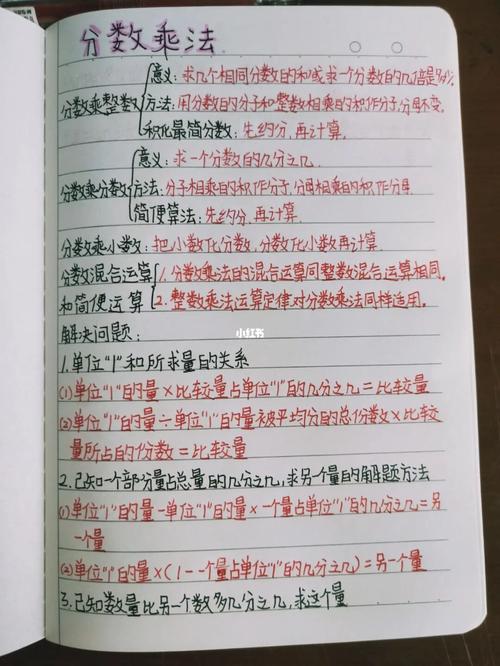 分数乘法
意义：求几个相同分数的和或求一个分数的几倍是多少。
分数乘整数 方法：用分数的分子和整数相乘的积作分子，分母不变。
积化最简分数：先约分，再计算。
意义：求一个分数的几分之几。
分数乘分数 方法：分子相乘的积作分子，分母相乘的积作分母
简便算法：先约分，再计算。
分数乘小数：把小数化分数，分数化小数再计算。
分数混合运算 1.分数乘法的混合运算同整数混合运算相同。
和简便运算 2.整数乘法运算定律对分数乘法同样适用。
解决问题：
小红书
1.单位"1"和所求量的关系
(1)单位"1"的量×比较量占单位"1"的几分之几=比较量
(2)单位"1"的量÷单位"1"的量被平均分的总份数×比较
量所占的份数=比较量
2.已知一个部分量占总量的几分之几，求另一个量的解题方法
(1)单位"1"的量-单位"1"的量×一个量占单位"1"的几分之几=另
一个量
(2)单位"1"的量×(1-一个量占单位"1"的几分之几)=另一个量
3.已知数量比另一个数多几分之几，求这个量